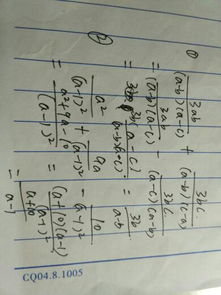 ①
\frac{3ab}{(a-b)(a-c)} + \frac{3bc}{(a-b)(c-a)}
= \frac{3ab}{(a-b)(a-c)} - \frac{3bc}{(a-b)(a-c)}
= \frac{3b(a-c)}{(a-b)(a-c)} = \frac{3b}{a-b}
②
\frac{a^2}{(a-1)^2} + \frac{9a}{(a-1)^2} - \frac{10}{(a-1)^2}
= \frac{a^2+9a-10}{(a-1)^2} = \frac{(a+10)(a-1)}{(a-1)^2}
= \frac{a+10}{a-1}
CQ04.8.1005